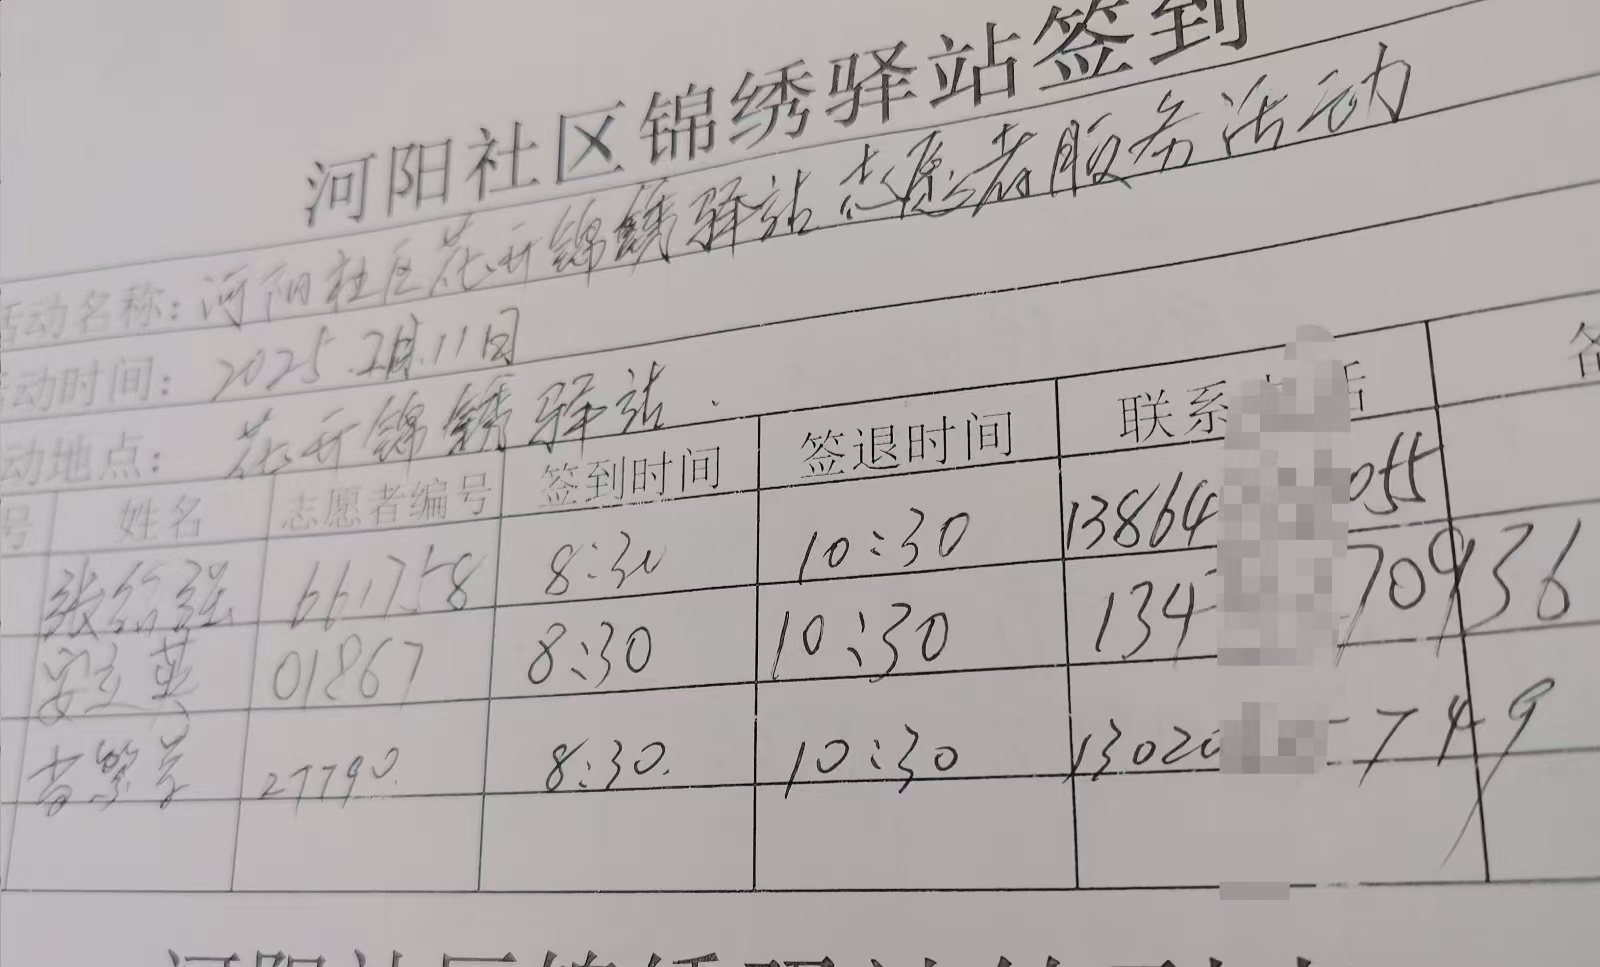 河阳社区锦绣驿站签到
活动名称：河阳社区花开锦绣驿站志愿者服务活动
活动时间：2025.2月.11日
动地点：花开锦绣驿站.
号 姓名 志愿者编号 签到时间 签退时间 联系 话 备
张 强 661758 8:30 10:30 13864 055
安立英 01867 8:30 10:30 134 70936
27790. 8:30. 10:30 1302 7749
河阳社区锦绣驿站签到